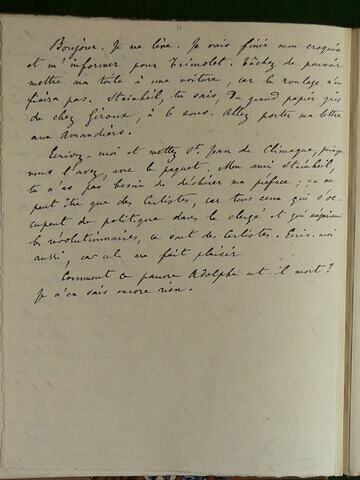 Bonjour. Je me lève. Je vais finir mon croquis
et m'informer pour Trimolet. Tâchez de pouvoir
mettre ma toile à une voiture, car le roulage n'en
finira pas. Steinheil, tu sais, Du grand papier gris
de chez Giroux, à 6 sous. Allez porter ma lettre
aux Amandiers.
Ecrivez-moi et mettez St. Jean de Climaque, puisque
vous l'avez, avec le paquet. Mon ami Steinheil,
tu n'as pas besoin de déchirer ma préface; ça ne
peut être que des Carlistes, car tous ceux qui s'oc-
cupent de politique dans le clergé et qui
les révolutionnaires, ce sont des Carlistes. Ecris-moi
aussi, car cela me fait plaisir
Comment ce pauvre Adolphe est-il mort?
Je n'en sais encore rien.